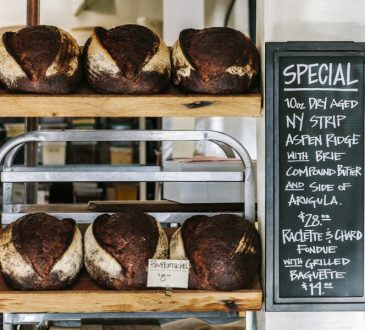 SPECIAL
10oz DRY AGED
NY STRIP
ASPEN RIDGE
WITH BRIE
COMPOUND BUTTER
AND SIDE OF
ARUGULA.
$28.00
RACLETTE & CHARD
FONDUE
WITH GRILLED
BAGUETTE
$14.00
PUMPERNICKEL